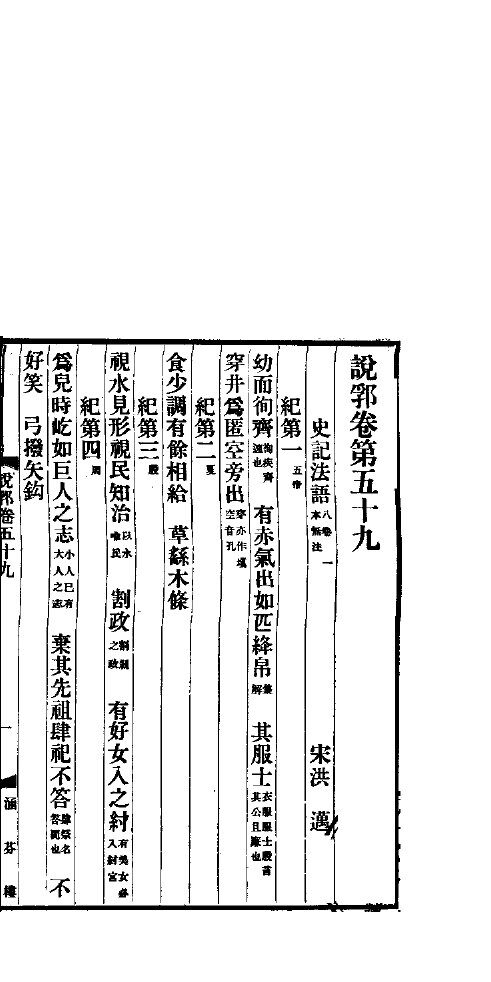 說郛卷第五十九
史記法語八卷本無注一 宋洪邁
紀第一五帝
幼而徇齊徇疾齊速也 有赤氣出如匹絳帛集解 其服士衣服服士
穿井爲匿空旁出穿亦作填空音孔
紀第二夏
食少調有餘相給 草繇木條
紀第三殷
視水見形視民知治以水喻民 割政割剝之政 有好女入之紂有美女入紂宮
紀第四周
爲兒時屹如巨人之志小人已有大人之志 棄其先祖肆祀不答肆祭名答問也 不
好笑 弓撥矢鈎
說郛卷五十九 一 涵芬樓